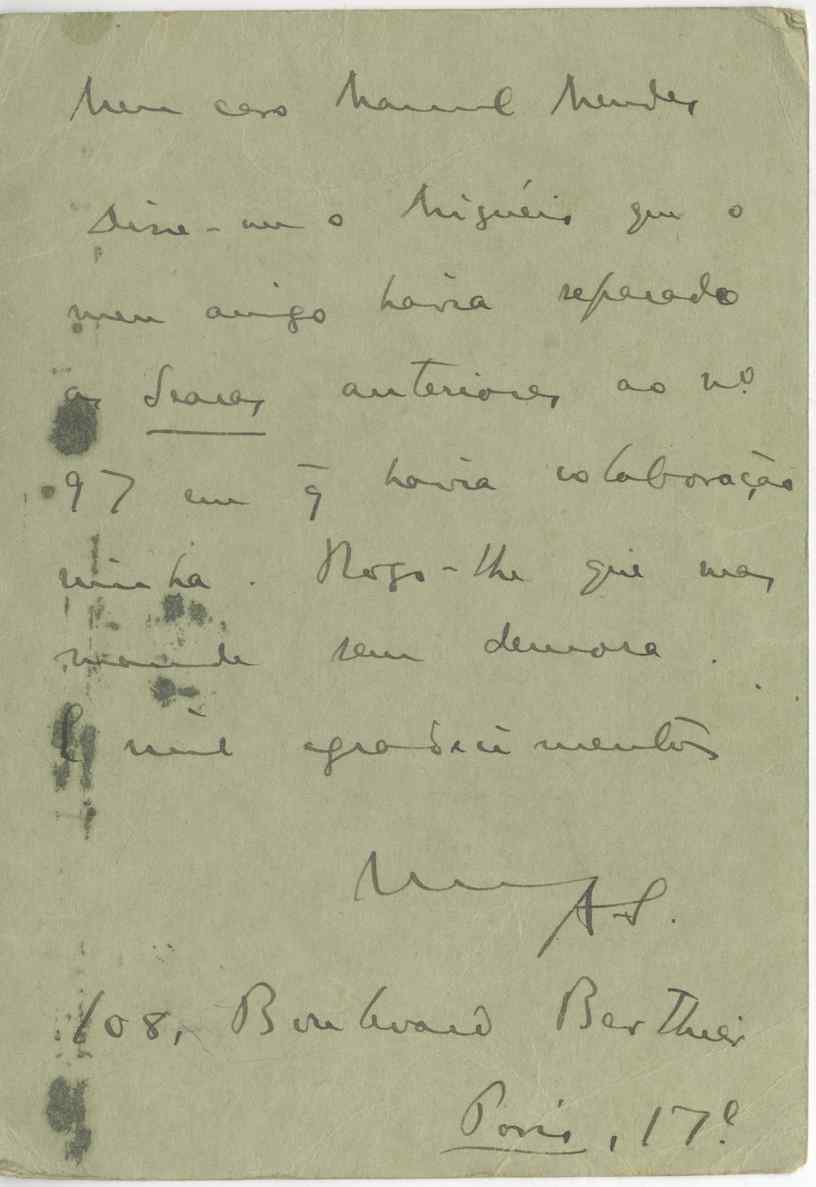 Meu caro Manuel Mendes
Disse-me o Miguéis que o
meu amigo havia separado
as Searas anteriores ao nº
97 em q̄ havia colaboração
minha. Rogo-lhe que mas
mande sem demora.
E mil agradecimentos
AS.
108, Boulevard Berthier
Paris, 17e